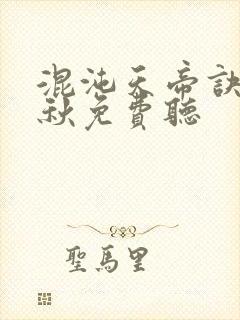 混沌天帝訣
秋免費聽
聖馬里